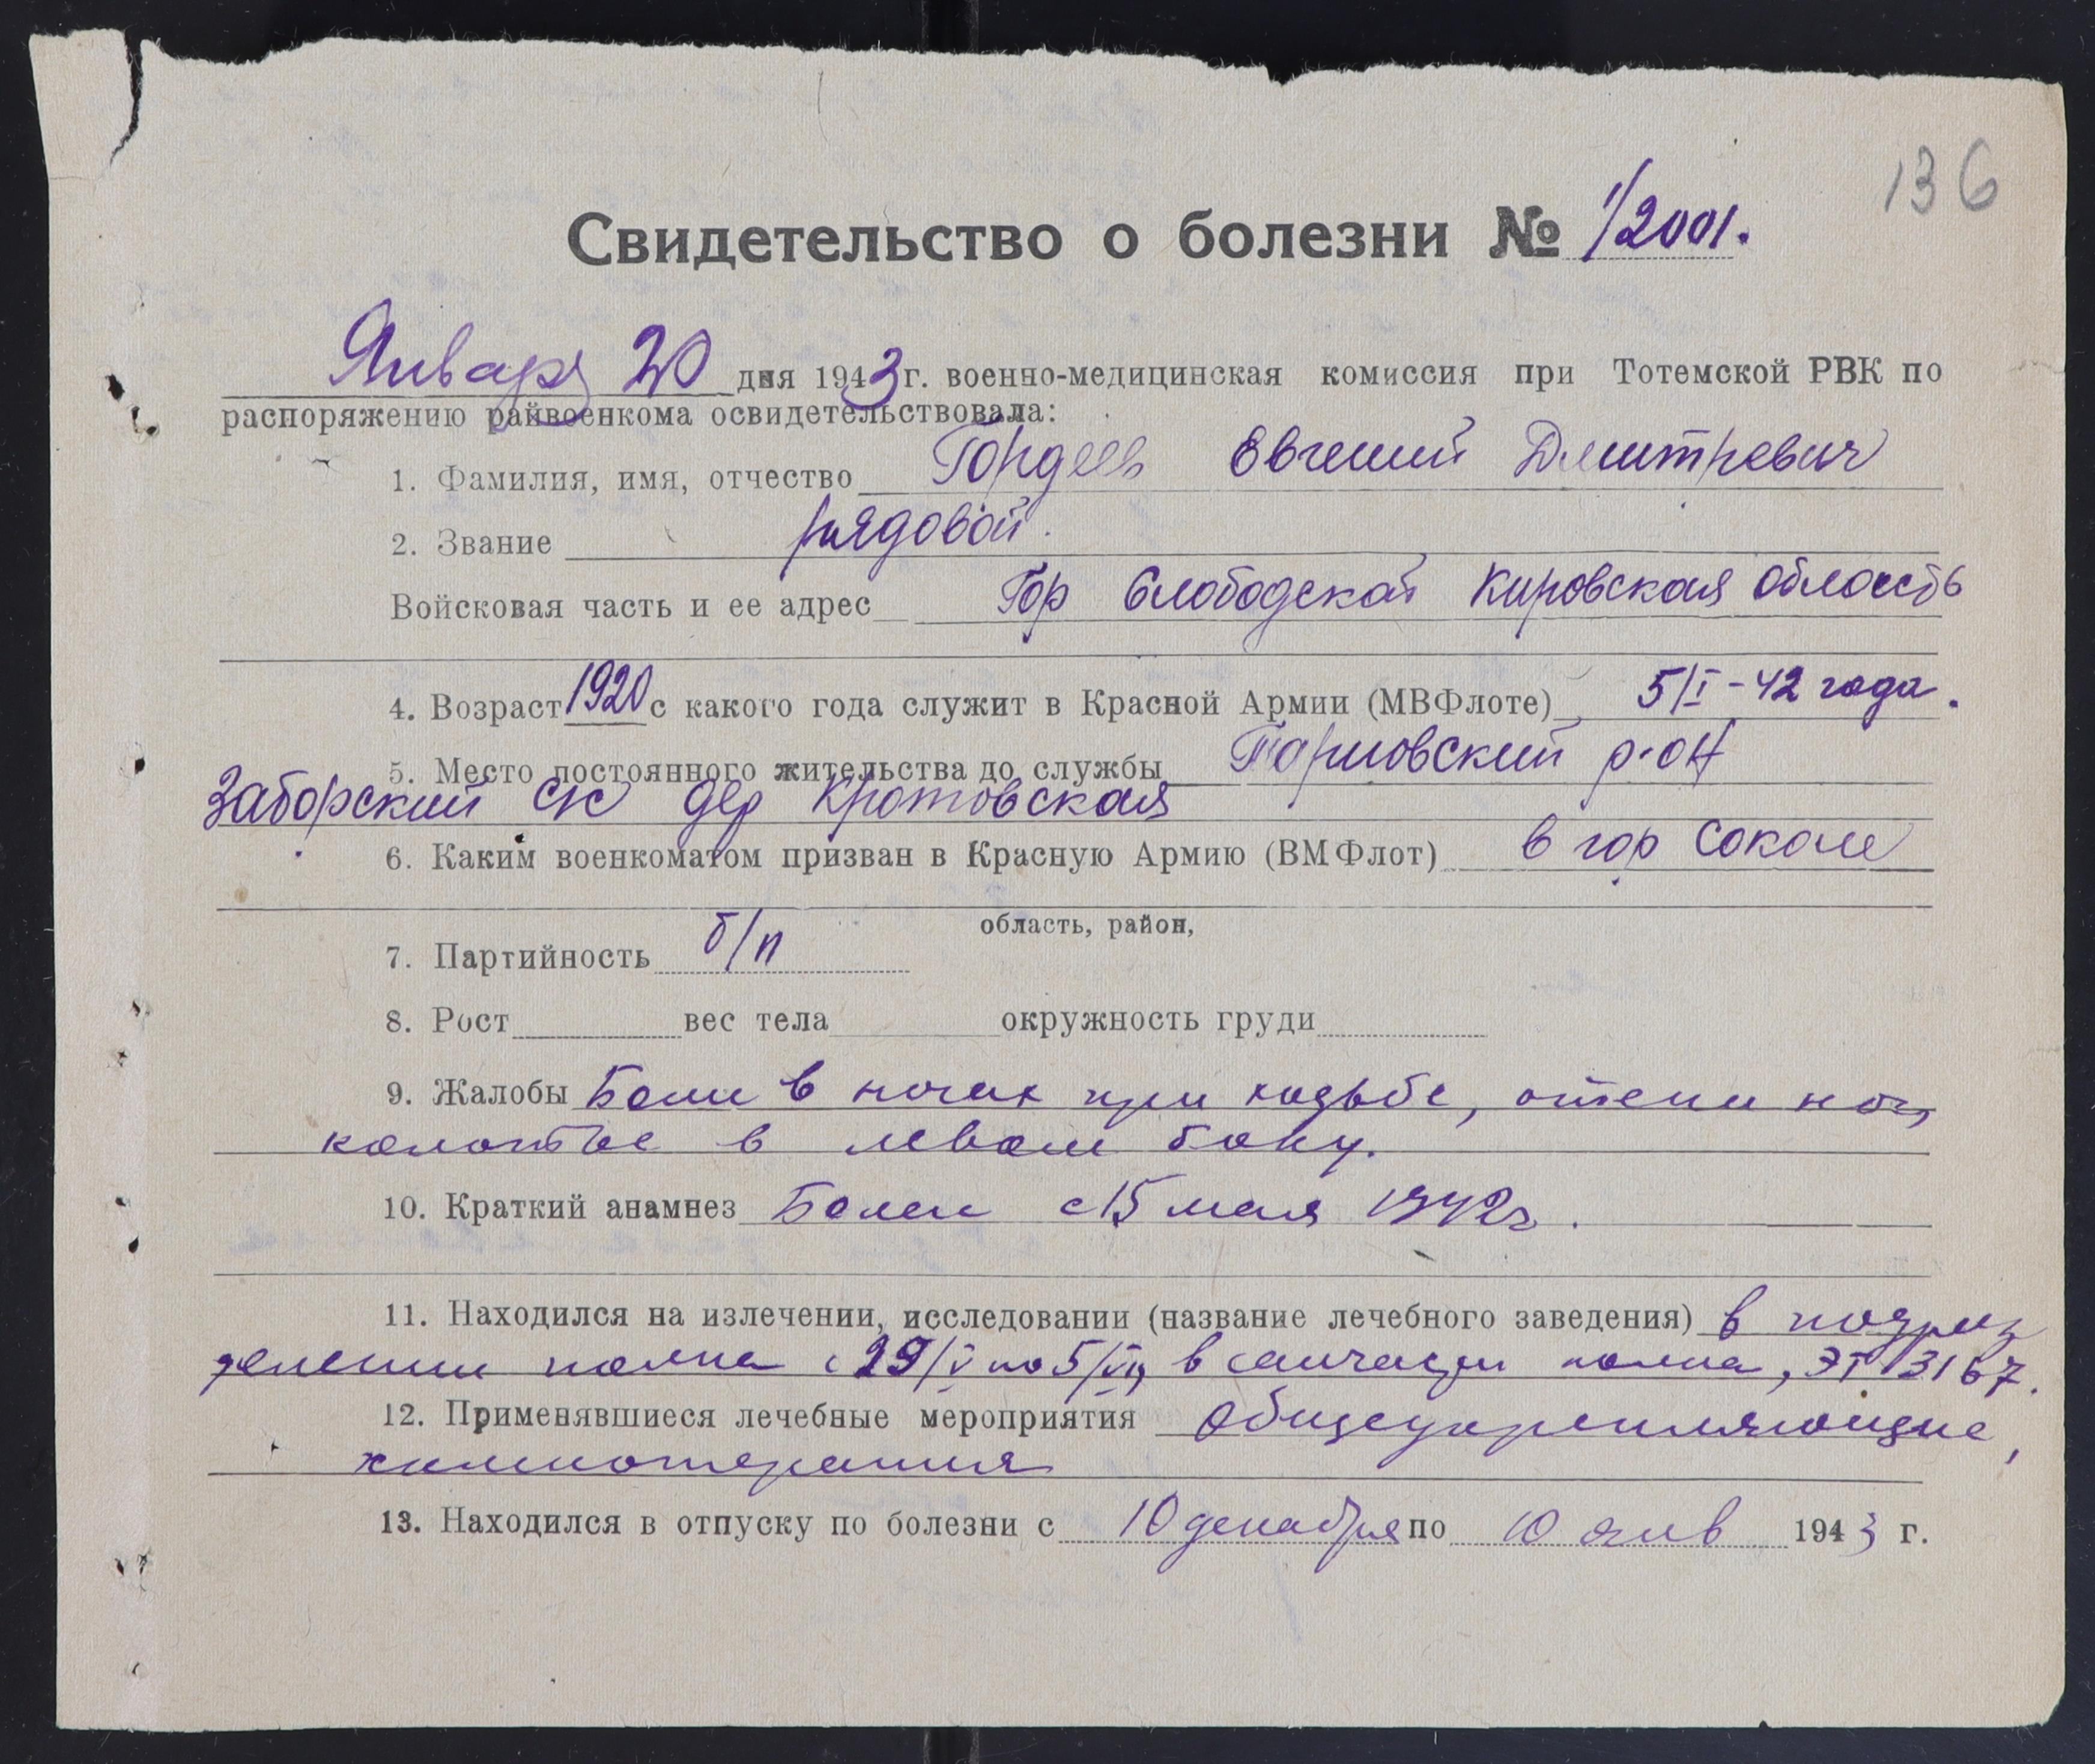 136
Свидетельство о болезни № 1/2001.
Января 20 дня 1943 г. военно-медицинская комиссия при Тотемской РВК по
распоряжению райвоенкома освидетельствовала:
1. Фамилия, имя, отчество Гордеев Евгений Дмитревич
2. Звание рядовой.
Войсковая часть и ее адрес Гор Слободской Кировская область
4. Возраст 1920 с какого года служит в Красной Армии (МВФлоте) 5/I-42 года.
5. Место постоянного жительства до службы Тарновский р-он
Заборский с/с дер Кротовская
6. Каким военкоматом призван в Красную Армию (ВМФлот) в гор Соколе
область, район,
7. Партийность б/п
8. Рост вес тела окружность груди
9. Жалобы Боли в ногах при ходьбе, отеки ног,
колотье в левом боку.
10. Краткий анамнез Болен с 15 мая 1942 г.
11. Находился на излечении, исследовании (название лечебного заведения) в подраз
делении полка с 29/V по 5/VII, в санчасти полка, ЭГ 3167.
12. Применявшиеся лечебные мероприятия общеукрепляющие,
химиотерапия
13. Находился в отпуску по болезни с 10 декабря по 10 янв 1943 г.